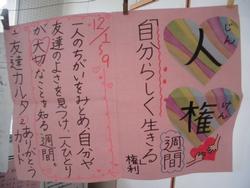 人権
じんけん
「自分らしく生きる」
権利
週間
12/1〜9
一人のちがいをみとめ、自分や
友達のよさを見つけ、一人ひとり
が大切なことを知る週間。
友達カルタ
ありがとうカード